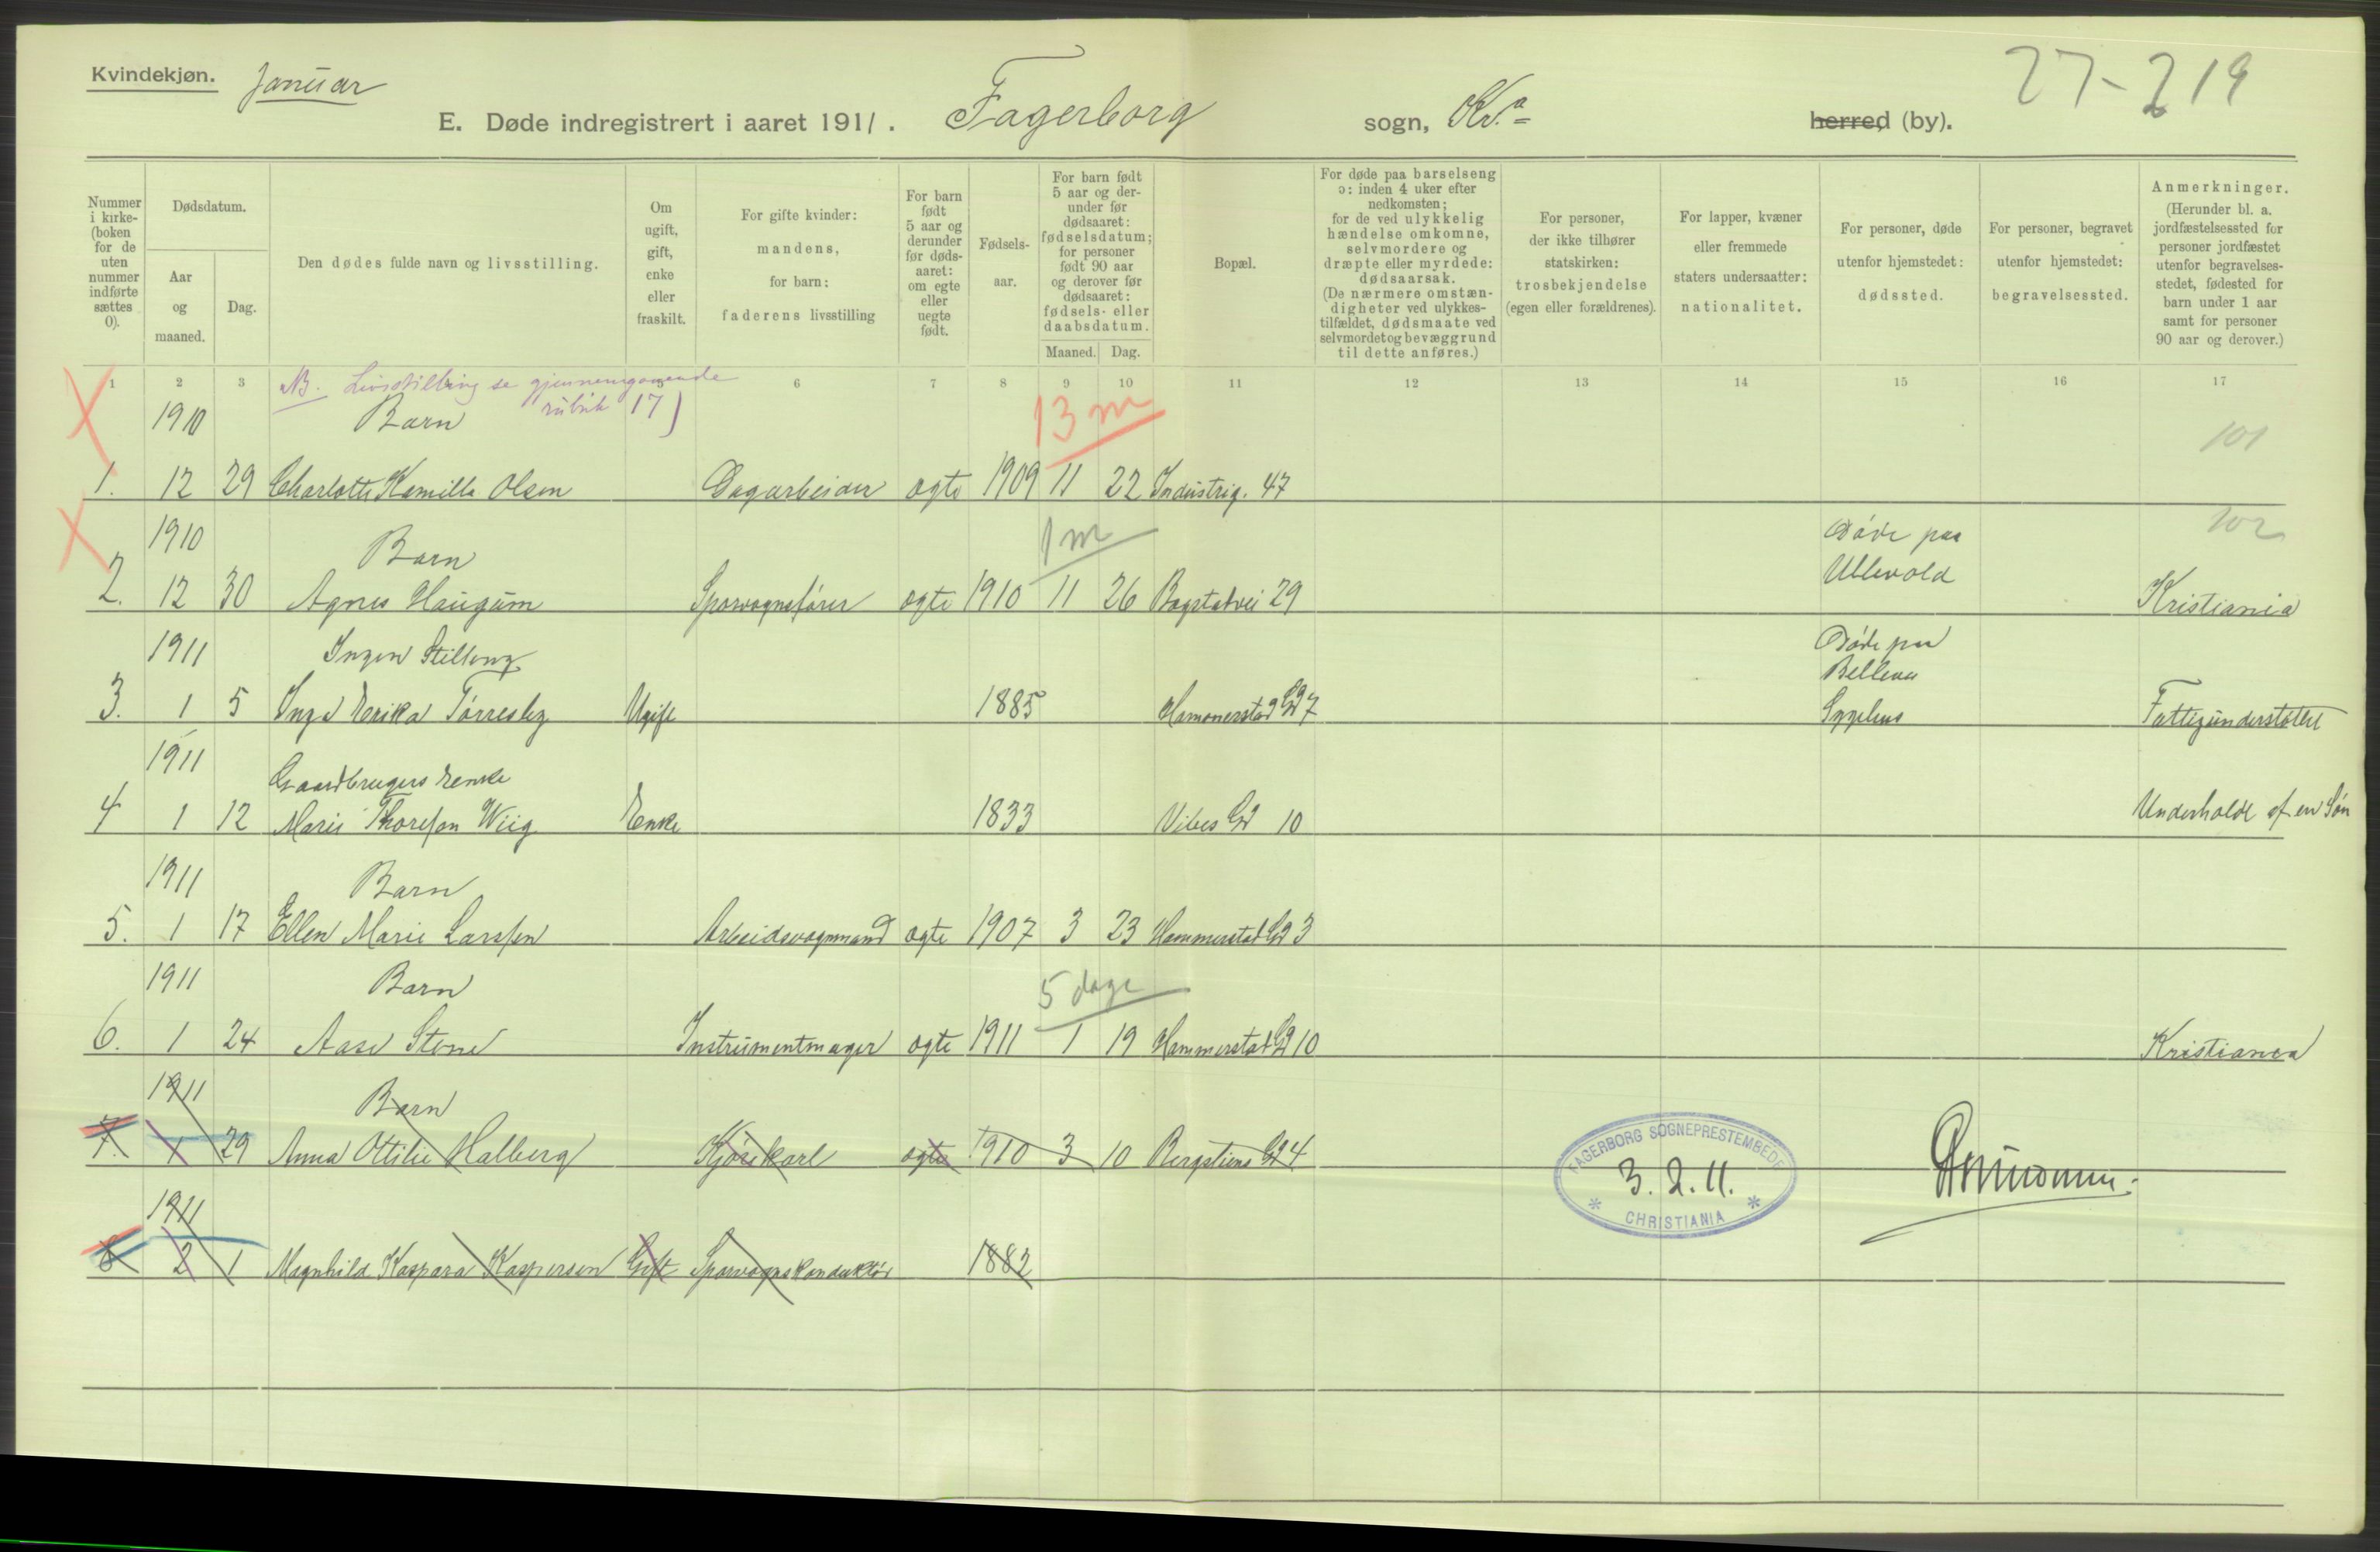 Kvindekjøn. Januar
27-219
E. Døde indregistrert i aaret 1911. Fagerborg sogn, Kr.a herred (by).
Nummer i kirke-(boken for de uten nummer indførte sættes 0).
Dødsdatum.
Aar og maaned.
Dag.
Den dødes fulde navn og livsstilling.
Om ugift, gift, enke eller fraskilt.
For gifte kvinder: mandens, for barn: faderens livsstilling
For barn født 5 aar og derunder før døds-aaret: om egte eller uegte født.
Fødsels-aar.
For barn født 5 aar og der-under før dødsaaret: fødselsdatum; for personer født 90 aar og derover før dødsaaret: fødsels- eller daabsdatum.
Maaned. Dag.
Bopæl.
For døde paa barselseng ɔ: inden 4 uker efter nedkomsten; for de ved ulykkelig hændelse omkomne, selvmordere og dræpte eller myrdede: dødsaarsak. (De nærmere omstæn-digheter ved ulykkes-tilfældet, dødsmaate ved selvmord et og bevæggrund til dette anføres.)
For personer, der ikke tilhører statskirken: trosbekjendelse (egen eller forældrenes).
For lapper, kvæner eller fremmede staters undersaatter: nationalitet.
For personer, døde utenfor hjemstedet: dødssted.
For personer, begravet utenfor hjemstedet: begravelsessted.
Anmerkninger. (Herunder bl. a. jordfæstelsessted for personer jordfæstet utenfor begravelses-stedet, fødested for barn under 1 aar samt for personer 90 aar og derover.)
1 2 3 6 7 8 9 10 11 12 13 14 15 16 17
NB. Livsstilling se gjennemgaaende
rubrik 17)
1910 Barn 13 m 101
1. 12 29 Charlotte Kamilla Olsen Dagarbeider ægte 1909 11 22 Industrig. 47
1910 Barn 1 m Døde paa 102
Ullevold
2. 12 30 Agnes Haugum Sporvognsfører ægte 1910 11 26 Bogstadvei 29 Kristiania
1911 Ingen Stilling Døde paa
Bellevue
3. 1 5 Inga Erika Tørresby Ugift 1885 Hammerstad Gd 7 Sygehus Fattigunderstøttet
1911 Gaardbrugers Enke
4 1 12 Marie Thoresen Wiig Enke 1833 Vibes Gd 10 Underholdt af en Søn
1911 Barn
5. 1 17 Ellen Marie Larssen Arbeidsvognmand ægte 1907 3 23 Hammerstad Gd 3
1911 Barn 5 dage
6. 1 24 Aase Stene Instrumentmager ægte 1911 1 19 Hammerstad Gd 10 Kristiania
1911 Barn
7. 1 29 Anna Ottilie Halberg Kjørekarl ægte 1910 3 10 Bergstiens Gd 4
FAGERBORG SOGNEPRESTEMBEDE
3.2.11.
* CHRISTIANIA *
1911
8 2 1 Magnhild Kaspara Kaspersen Gift Sporvognskonduktør 1882